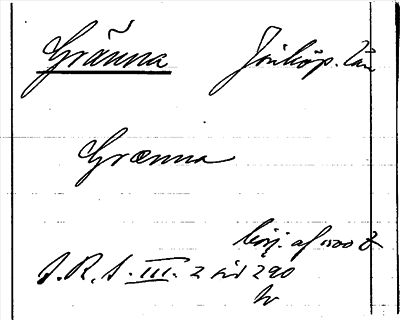 Gränna Jönköp. län
Grænna
börj. af 1500 t
S.R.S. III. 2 sid 290